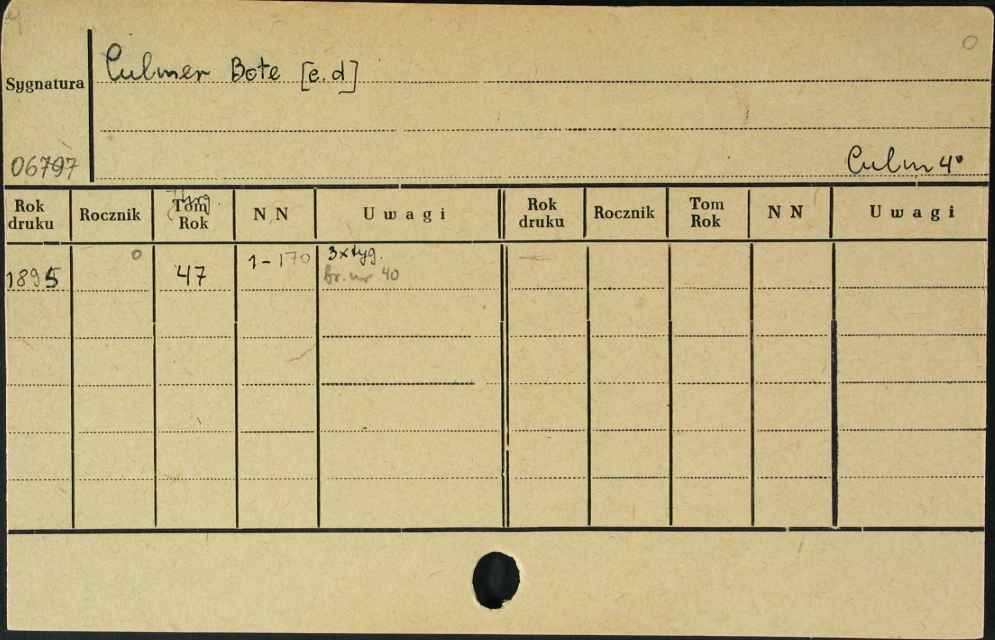 Culmer Bote [e.d]
Sygnatura
06797
Culm 4°
Rok druku Rocznik Tom Rok NN Uwagi Rok druku Rocznik Tom Rok NN Uwagi
1895 47 1-170 3xtyg.
br. nr 40